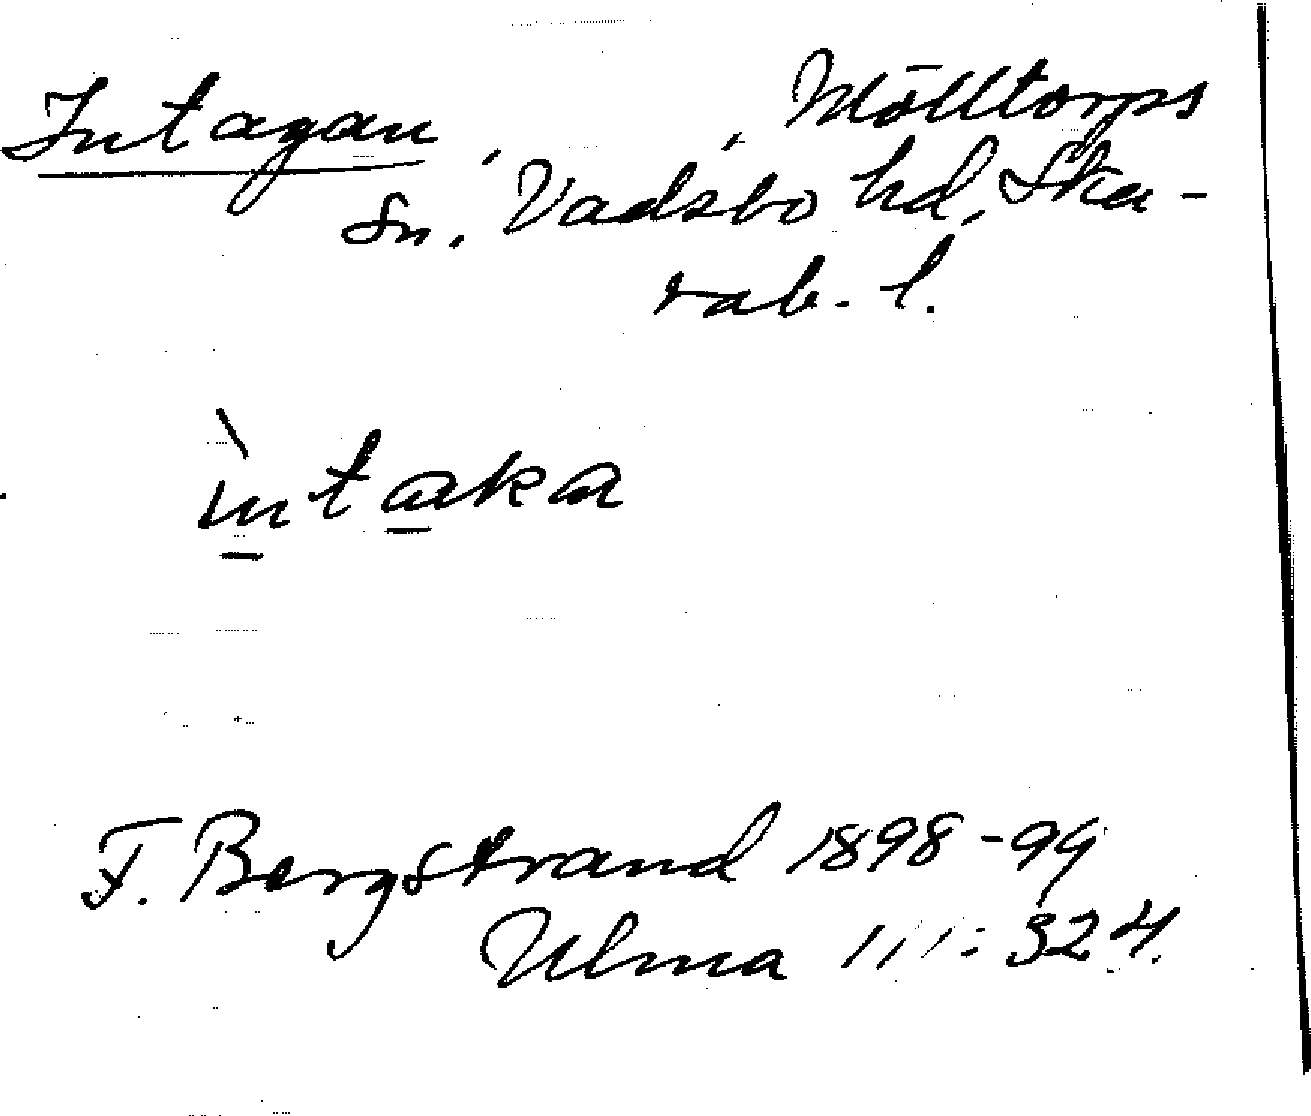 Intagan, , Mölltorps
sn, Vadsbo hd, Ska-
rab. l.
ìntaka
F. Bergstrand 1898-99
Ulma 111:324.